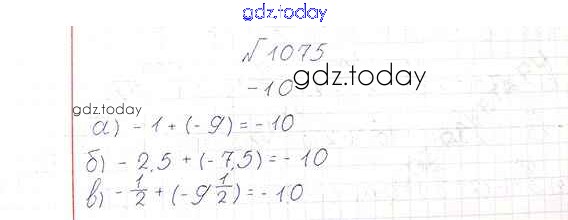 gdz.today
№1075
-10
gdz.today
gdz.today
а) - 1 + (- 9) = - 10
б) - 2,5 + (- 7,5) = - 10
в) - 1/2 + (- 9 1/2) = - 10